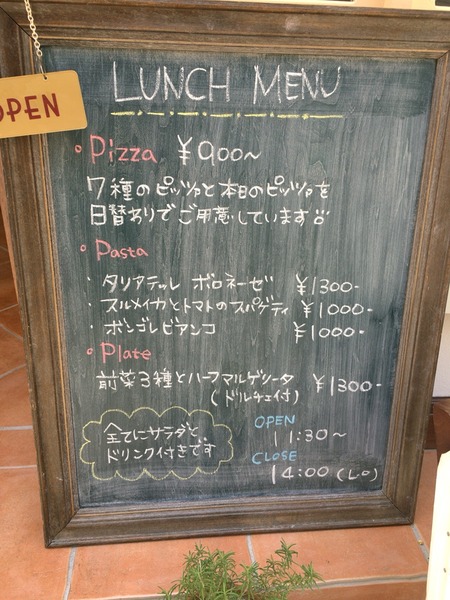 OPEN
LUNCH MENU
Pizza ¥900~
7種のピッツァと本日のピッツァを
日替わりでご用意しています
Pasta
・タリアテッレ ボロネーゼ ¥1300-
・スルメイカとトマトのスパゲティ ¥1000-
・ボンゴレビアンコ ¥1000-
Plate
前菜3種とハーフマルゲリータ ¥1300-
(ドルチェ付)
全てにサラダと、
ドリンク付きです
OPEN
11:30~
CLOSE
14:00 (L.O)